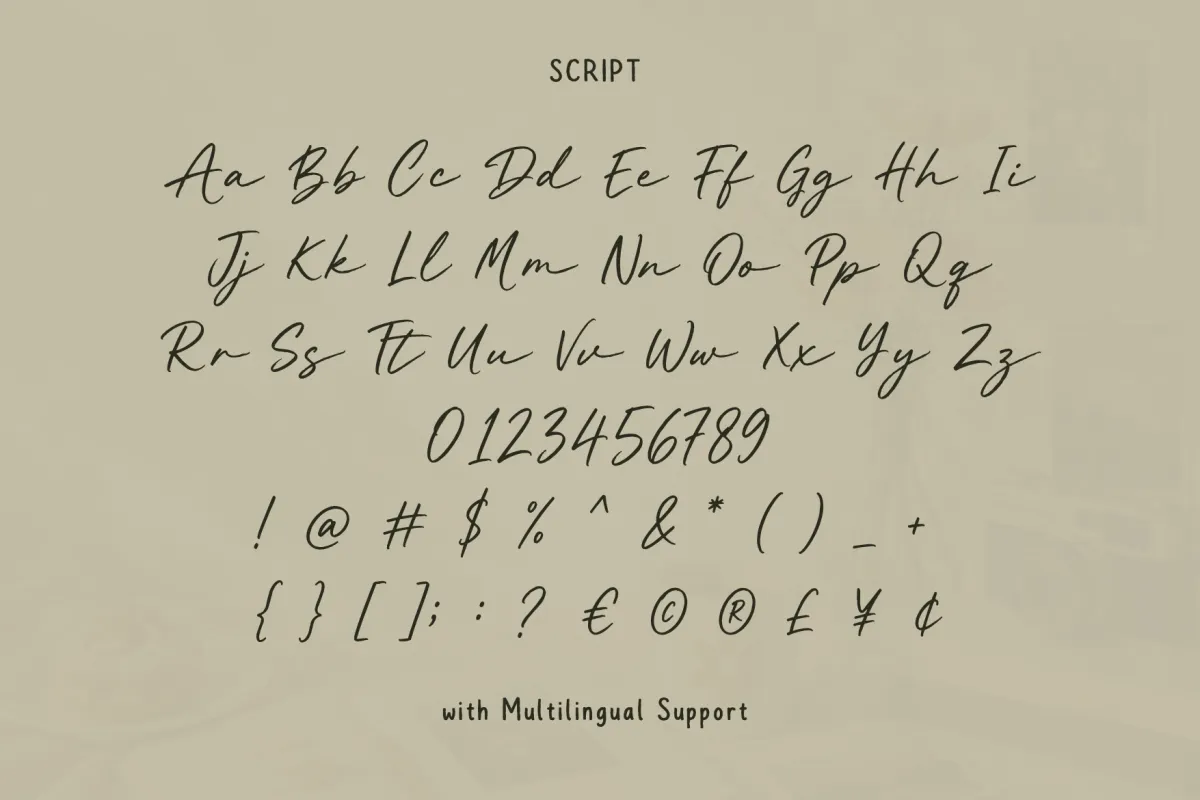 SCRIPT
Aa Bb Cc Dd Ee Ff Gg Hh Ii
Jj Kk Ll Mm Nn Oo Pp Qq
Rr Ss Tt Uu Vv Ww Xx Yy Zz
0123456789
! @ # $ % ^ & * ( ) _ +
{ } [ ] ; : ? € © ® £ ¥ ¢
with Multilingual Support